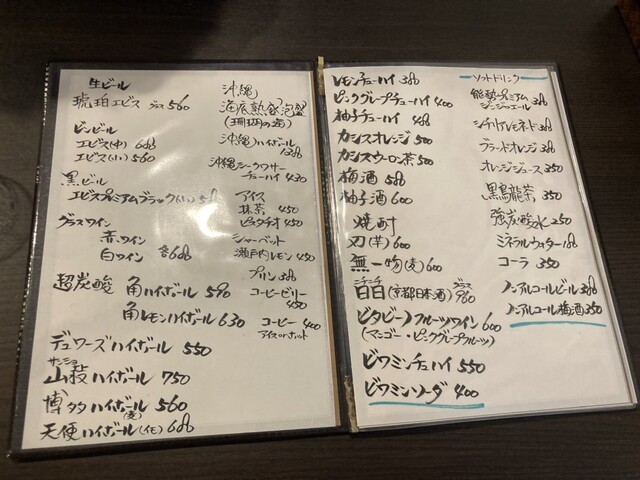 生ビール
琥珀エビス グラス 560
ビンビール
エビス(中) 688
エビス(小) 560
黒ビール
エビスプレミアムブラック(小)
グラスワイン
赤ワイン
白ワイン 各688
超炭酸 角ハイボール 590
角レモンハイボール 630
デュワーズハイボール 550
サンショ
山椒ハイボール 750
博多ハイボール 560
(麦)
天使ハイボール(イモ) 688
沖縄
海底熟成泡盛
(珊瑚の海)
沖縄ハイボール
沖縄シークワサー
チューハイ 430
アイス
抹茶 450
ピスタチオ 450
シャーベット
瀬戸内レモン 450
プリン 388
コーヒーゼリー
450
コーヒー 400
アイスorホット
レモンチューハイ 388
ピンクグレープチューハイ 400
柚子チューハイ 488
カシスオレンジ 500
カシスウーロン茶 500
梅酒 588
柚子酒 600
焼酎
刀(芋) 600
無一物(麦) 600
ニチニチ
日日(京都日本酒) グラス 960
ビタビーノフルーツワイン 600
(マンゴー・ピンクグレープフルーツ)
ビワミンチューハイ 550
ビワミンソーダ 400
ソフトドリンク
能勢プレミアム
ジンジャエール 388
シチリアレモネード 388
ブラッドオレンジ 388
オレンジジュース 350
黒烏龍茶 350
強炭酸水 250
ミネラルウォター 188
コーラ 350
ノンアルコールビール 388
ノンアルコール梅酒 350